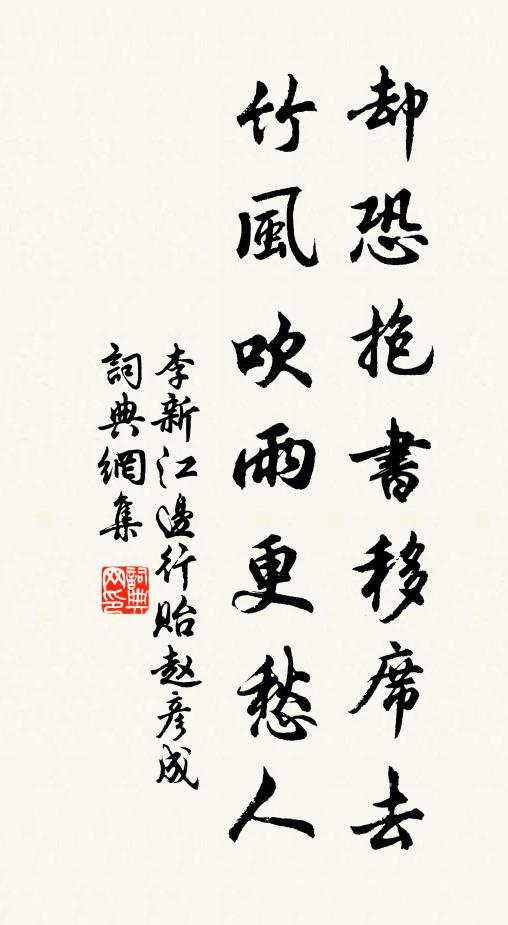 却恐抱書移席去
竹風吹雨更愁人
李新江邊行貽赵彦成
詞典網集
詞典網印